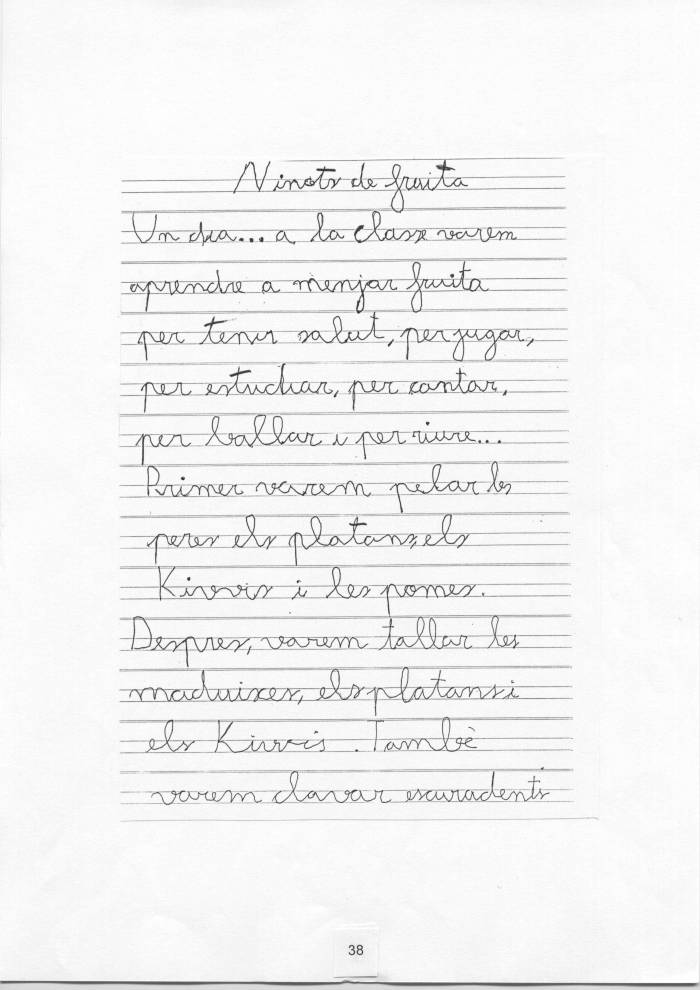 Ninots de fruita
Un dia... a la classe varem
aprendre a menjar fruita
per tenir salut, per jugar,
per estudiar, per cantar,
per ballar i per riure...
Primer varem pelar les
peres els platans, els
Kiwis i les pomes.
Despres, varem tallar les
maduixes, els platans i
els Kiwis. També
varem clavar escuradents
38